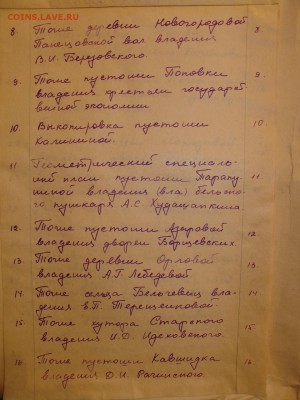 COINS.LAV.RU
8 Тоже деревни Новогородовой 8.
Панецовской вол. владения
В.И. Березовского.
9. Тоже пустоши Поповки 9.
владения крестьян государст
венной экономии
10. Выкопировка пустоши 10
Калининой.
11. Геометрический специаль-
ный план пустоши 11.
владения (вла) бельско-
го пушкаря А.С.
12. Тоже пустоши Азаровой 12
владения дворян Борщевских.
13. Тоже деревни Орловой 13
владения А.Г. Лебедевой
14. Тоже сельца вла- 14
дения В.П. Терешенковой
15. Тоже хутора Старского 15
владения И.Д.
16. Тоже пустоши 16
владения О.И. Рачинского